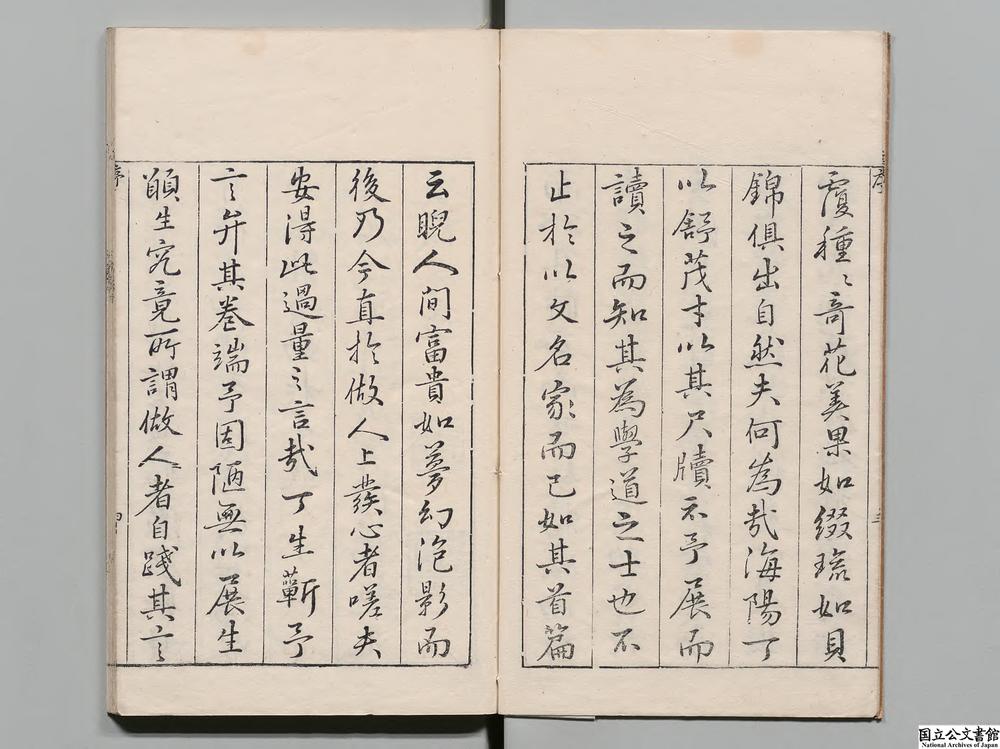 覆種〻奇花美果如綴琉如貝
錦俱出自然夫何為哉海陽丁
以舒茂才以其尺牘示予展而
讀之而知其為學道之士也不
止於以文名家而已如其首篇
云睨人間富貴如夢幻泡影而
後乃今直於做人上發心者嗟夫
安得此過量之言哉丁生蘄予
言弁其卷端予固陋無以展生
顧生究竟所謂做人者自踐其言
序
序
三
四
国立公文書館
National Archives of Japan